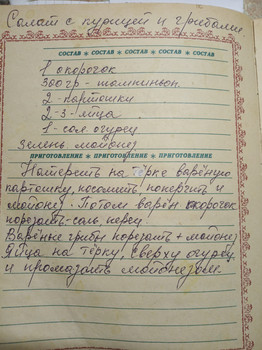 Салат с курицей и грибами
СОСТАВ ★ СОСТАВ ★ СОСТАВ ★ СОСТАВ ★ СОСТАВ
1 окорочок
300 гр - шампиньон.
2 - картошки
2-3 - яйца
1 - сол. огурец
зелень майонез
ПРИГОТОВЛЕНИЕ ★ ПРИГОТОВЛЕНИЕ ★ ПРИГОТОВЛЕНИЕ
Натереть на тёрке варёную
картошку, посолить, поперчить и
майонез. Потом варён окорочок
порезать - соль, перец
Варёные грибы порезать + майонез
Яйца на тёрку, сверху огурец
и промазать майонезом.